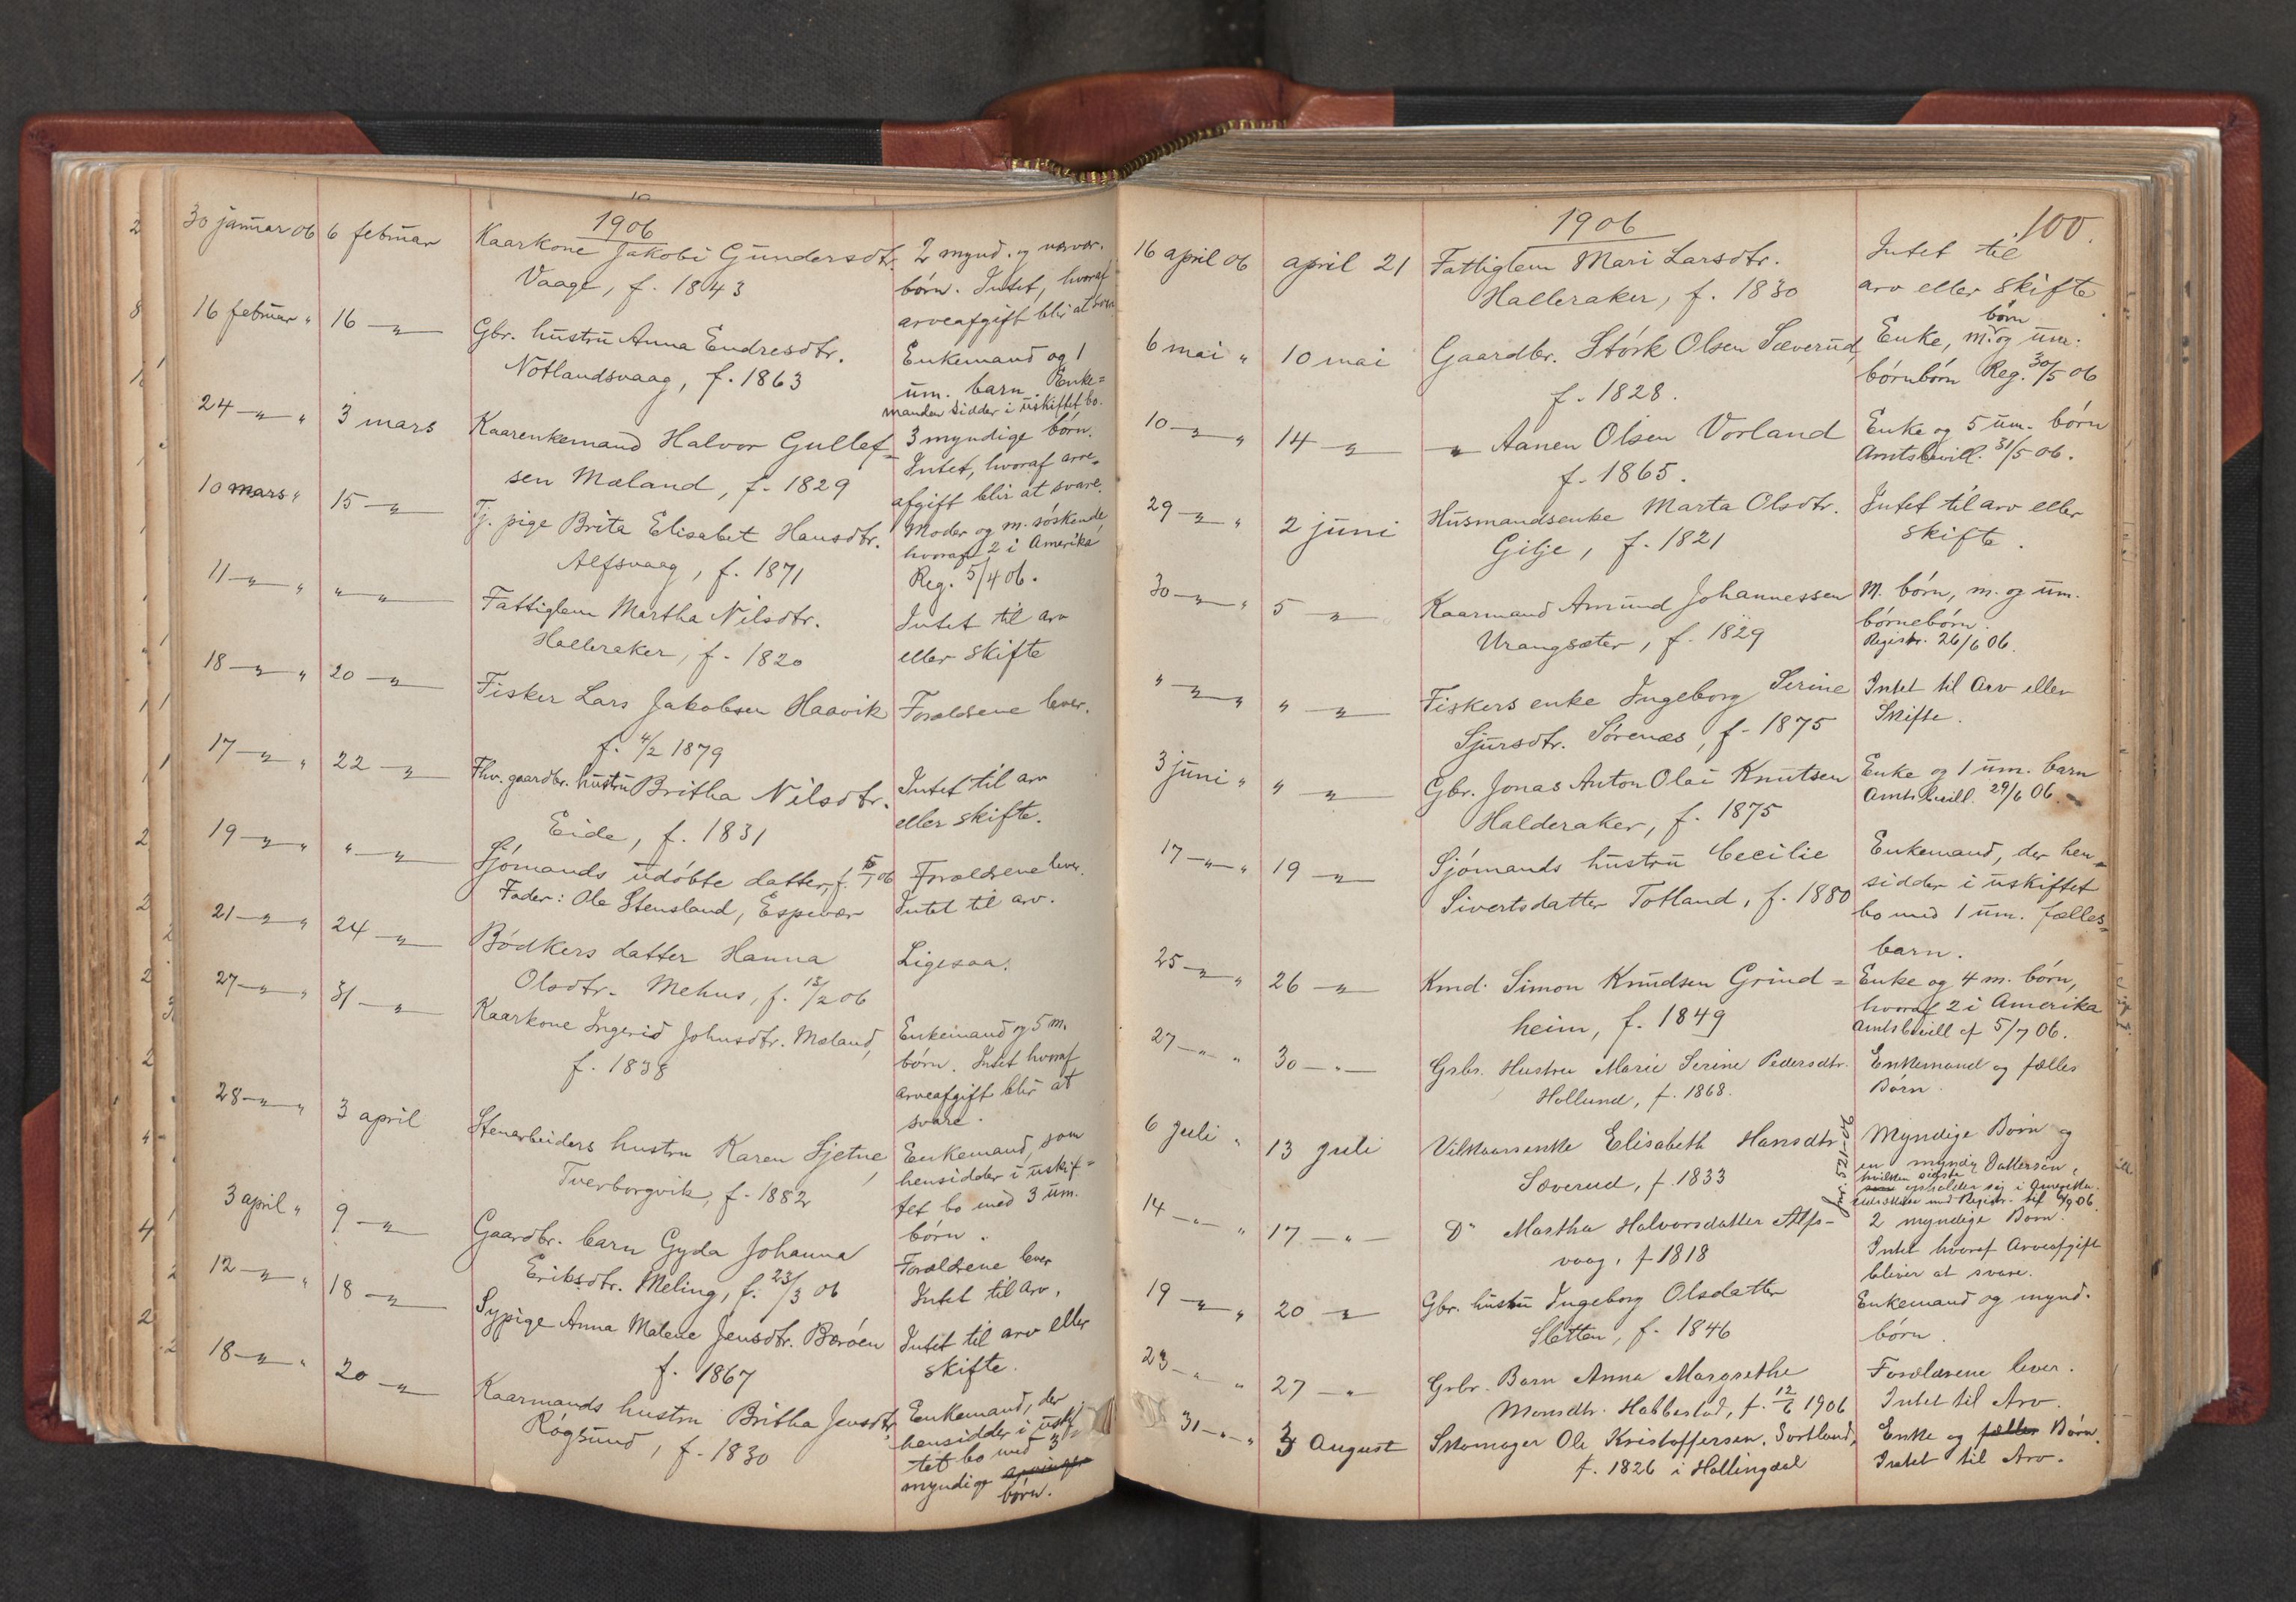 1906
30 januar 06 6 februar Kaarkone Jakobi Gundersdtr. 2 mynd. og
Vaage, f. 1843 børn. Intet, hvoraf
arveafgift blir at
16 februar " 16 —"— Gbr. hustru Anna Endresdtr. Enkemand og 1
Notlandsvaag, f. 1863 um. barn. Enke=
manden sidder i uskiftet bo.
24 —"— " 3 mars Kaarenkemand Halvor Gullef= 3 myndige børn.
sen Mæland, f. 1829 Intet, hvoraf arve=
afgift blir at svare.
10 mars " 15 —"— Tj. pige Brita Elisabet Hansdtr. Moder og m. søskende
Alfsvaag, f. 1871 hvoraf 2 i Amerika
Reg. 5/4 06.
11 —"— " " —"— Fattiglem Martha Nilsdtr. Intet til arv
Halleraker, f. 1820 eller skifte
18 —"— " 20 —"— Fisker Lars Jakobsen Haavik Forældrene lever.
f. 4/2 1879
17 —"— " 22 —"— Fhv. gaardbr. hustru Britha Nilsdtr. Intet til arv
Eide, f. 1831 eller skifte.
19 —"— " " —"— Sjómands udøbte datter, f. 5/1 06 Forældrene lever.
Fader: Ole Stensland, Espevær Intet til arv.
21 —"— " 24 —"— Bødkers datter Hanna Ligesaa.
Olsdtr. Mehus, f. 12/2 06
27 —"— " 31 —"— Kaarkone Ingerid Johnsdtr. Mæland, Enkemand og 5 m.
f. 1838 børn. Intet hvoraf
arveafgift blir at
svare.
28 —"— " 3 april Stenarbeiders hustru Karen Sjetne, Enkemand, som
Tverborgvik, f. 1882 hensidder i uskif=
tet bo med 3 um.
børn.
3 april " 9 —"— Gaardbr. barn Gyda Johanna Forældrene lever
Eriksdtr. Meling, f. 23/3 06 Intet til arv.
12 —"— " 18 —"— Sypige Anna Malene Jensdtr. Børøen Intet til arv eller
f. 1867 skifte.
18 —"— " 20 —"— Kaarmands hustru Britha Jensdtr. Enkemand, der
Røgsund, f. 1830 hensidder i uskif
tet bo med 3
myndige
børn.
1906 100.
16 april 06 april 21 Fattiglem Mari Larsdtr. Intet til
Halleraker, f. 1830 arv eller skifte
børn
6 mai " 10 mai Gaardbr. Størk Olsen Sæverud, Enke, m. og um.
f. 1828. børnbørn Reg. 30/5 06
10 —"— " 14 —"— —"— Aanen Olsen Vorland Enke og 5 um. børn
f. 1865. Amtsbevill. 31/5 06.
29 —"— " 2 juni Husmandsenke Marta Olsdtr. Intet til arv eller
Gilje, f. 1821 skifte.
30 —"— " 5 —"— Kaarmand Amund Johannessen M. børn, m. og um.
Urangsæter, f. 1829 børnebørn.
Registr. 26/6 06.
" —"— " " —"— Fiskers enke Ingeborg Serine Intet til Arv eller
Sjursdtr. Sørenæs, f. 1875 Skifte.
3 juni " " —"— Gbr. Jonas Anton Olai Knutsen Enke og 1 um. barn
Halderaker, f. 1875 Amtsbevill. 29/6 06.
17 —"— " 19 —"— Sjømands hustru Cecilie Enkemand, der hen=
Sivertsdatter Totland, f. 1880 sidder i uskiftet
bo med 1 um. fælles=
barn.
25 —"— " 26 —"— Kmd. Simon Knudsen Grind= Enke og 4 m. børn,
heim, f. 1849 hvoraf 2 i Amerika
Amtsbevill af 5/7 06.
27 —"— " 30 —"— Grbr. Hustru Marie Serine Pedersdtr. Enkemand og fælles
Hollund, f. 1868. Børn.
6 juli " 13 juli Vilkaarsenke Elisabeth Hansdtr Myndige Børn og
Sæverud, f. 1833 en myndig Dattersøn,
hvilken sidste
opholder sig i Amerika.
med Registr. til 6/9 06.
14 —"— " 17 —"— Do Martha Halvorsdatter Alfs- 2 myndige Børn.
vaag, f 1818 Intet hvoraf Arveafgift
bliver at svare.
19 —"— " 20 —"— Gbr. hustru Ingeborg Olsdatter Enkemand og mynd.
Sletten, f. 1846 børn.
23 —"— " 27 —"— Grbr. Barn Anna Margrethe Forældrene lever.
Monsdtr. Habbestad, f. 12/6 1906 Intet til Arv.
31 —"— " 3 August Skomager Ole Kristoffersen, Sortland, Enke og fælles Børn.
f. 1826 i Hallingdal Intet til Arv.